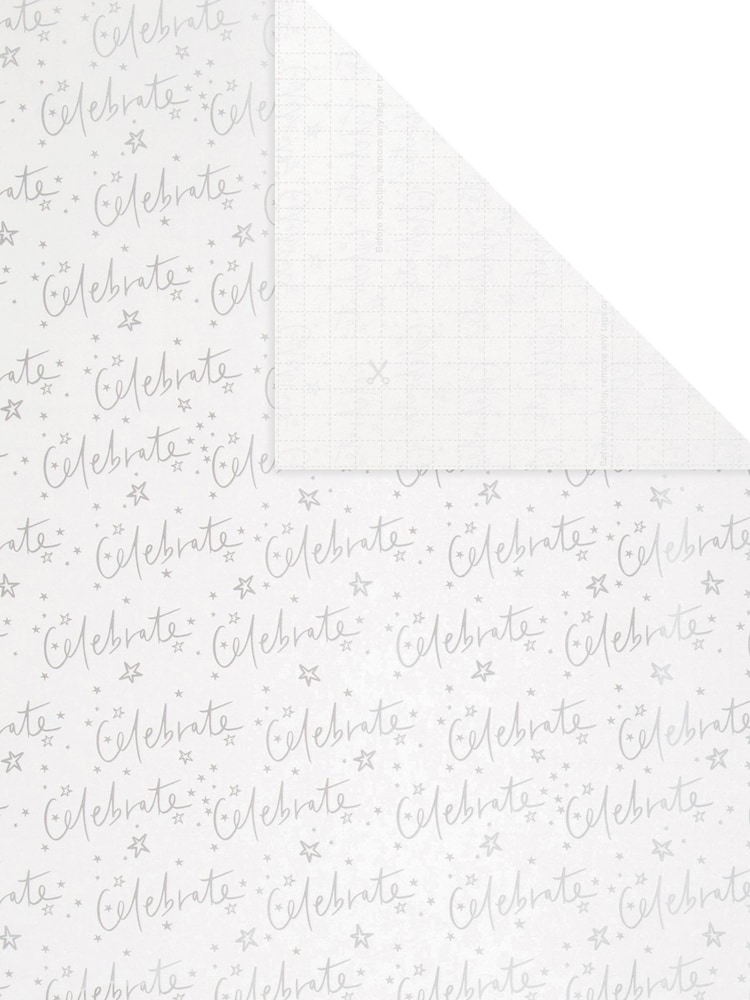 Celebrate
Before recycling, remove any tags or
Celebrate
Celebrate
Celebrate
recycling, remove any tags or
Celebrate
Celebrate
Celebrate Celebrate Celebrate Celebrate
Celebrate Celebrate Celebrate Celebrate
Celebrate Celebrate Celebrate Celebrate
Celebrate Celebrate Celebrate Celebrate
Celebrate Celebrate Celebrate Celebrate
Celebrate Celebrate Celebrate Celebrate